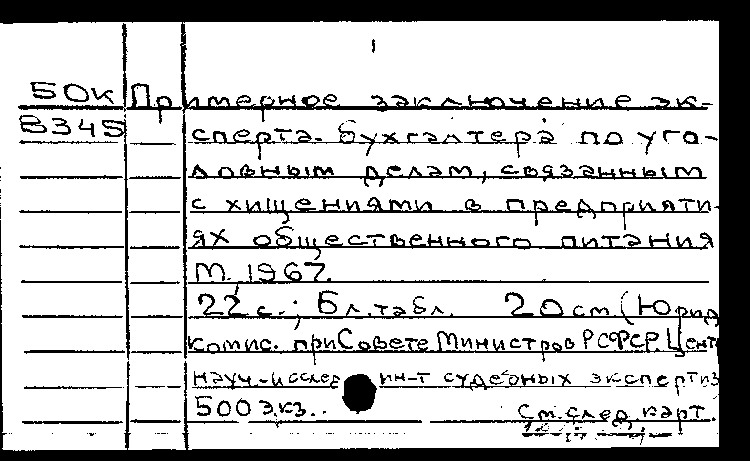 1
50к Примерное заключение эк-
В345 сперта-бухгалтера по уго-
ловным делам, связанным
с хищениями в предприяти-
ях общественного питания
М. 1967.
22 с.; Бл. табл. 20 см. (Юрид
комис. при Совете Министров РСФСР. Центр
науч.-исслед ин-т судебных экспертиз
500 экз..
См. след. карт.